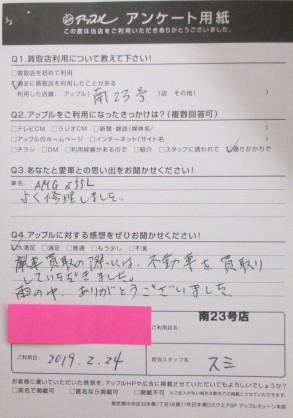 アップル アンケート用紙
この度は当店をご利用いただきありがとうございました。
Q1.買取店利用について教えて下さい!
□買取店を初めて利用
☑過去に買取店を利用したことがある
利用した店舗: アップル( 南23号 )店 その他( )
Q2.アップルをご利用になったきっかけは?(複数回答可)
□テレビCM □ラジオCM □新聞・雑誌(媒体名/ )
□アップルのホームページ □インターネット(サイト名/ )
□チラシ □DM □利用経験があるので □紹介 □スタッフに誘われて ☑通りがかりで
Q3.あなたと愛車との思い出をお聞かせください!
車名: AMG S55L
よく修理しました。
Q4.アップルに対する感想をぜひお聞かせください!
☑大満足 □満足 □普通 □もう少し □不満
買取の際には、不動車を買取り
していただきました。
雨の中、ありがとうございました。
ご利用店名:
南23号店
ご利用日: 2019.2.24
担当スタッフ名: スミ
お客様に書いていただいた感想を、アップルHPや広告に掲載させていただいてもよろしいでしょうか?
□実名で掲載可 □匿名なら掲載可